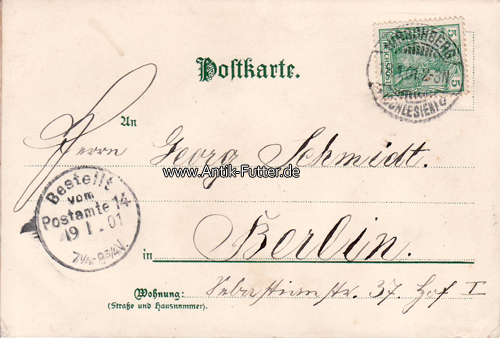 HIRSCHBERG
(SCHLESIEN)
5 5
Postkarte.
An
Herrn Georg Schmidt.
www.Antik-Futter.de
Bestellt
vom
Postamte 14
19 1. 01
7½-8¾V.
in Berlin.
Wohnung: Sebastianstr. 37. Hof I
(Straße und Hausnummer).